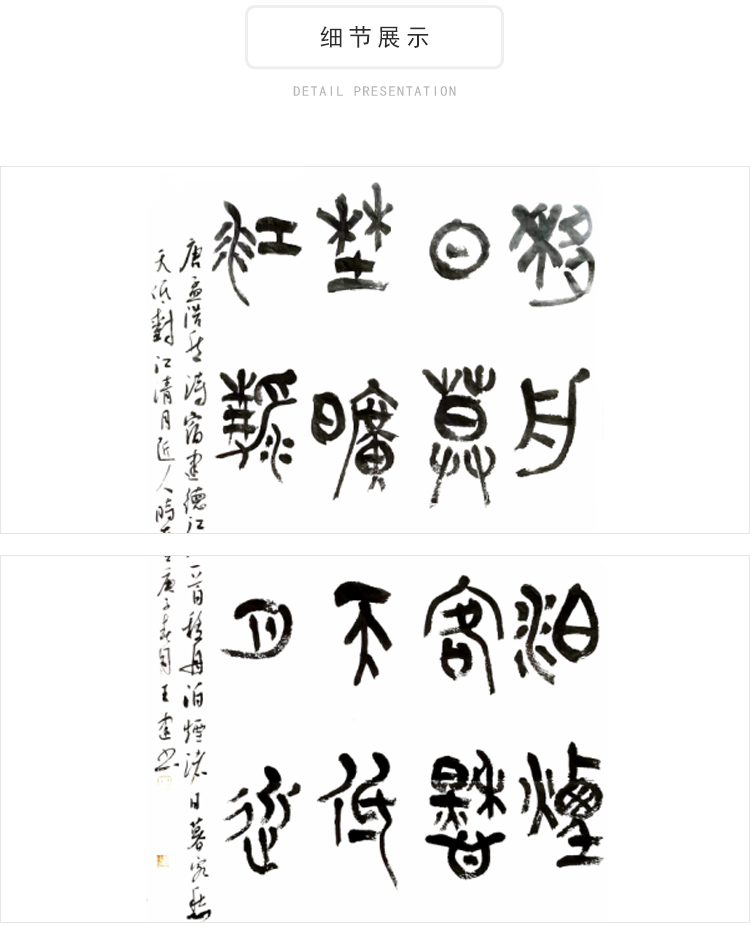 细节展示
DETAIL PRESENTATION
移舟
日暮
埜曠
江清
唐孟浩然詩宿建德江
天低對江清月近人時
泊煙
客愁
天低
月近
一首移舟泊煙渚日暮客愁
庚子春月王建书